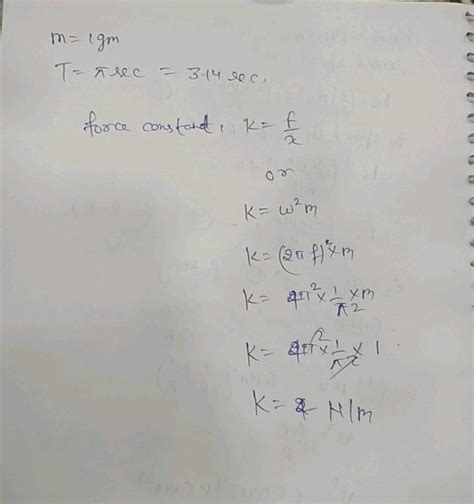 m = 1gm
T = π sec = 3.14 sec.
force constant, K = f/x
or
K = ω²m
K = (2πf)² × m
K = 4π² × 1/π² × m
K = 4π² × 1/π² × 1
K = 4 N/m